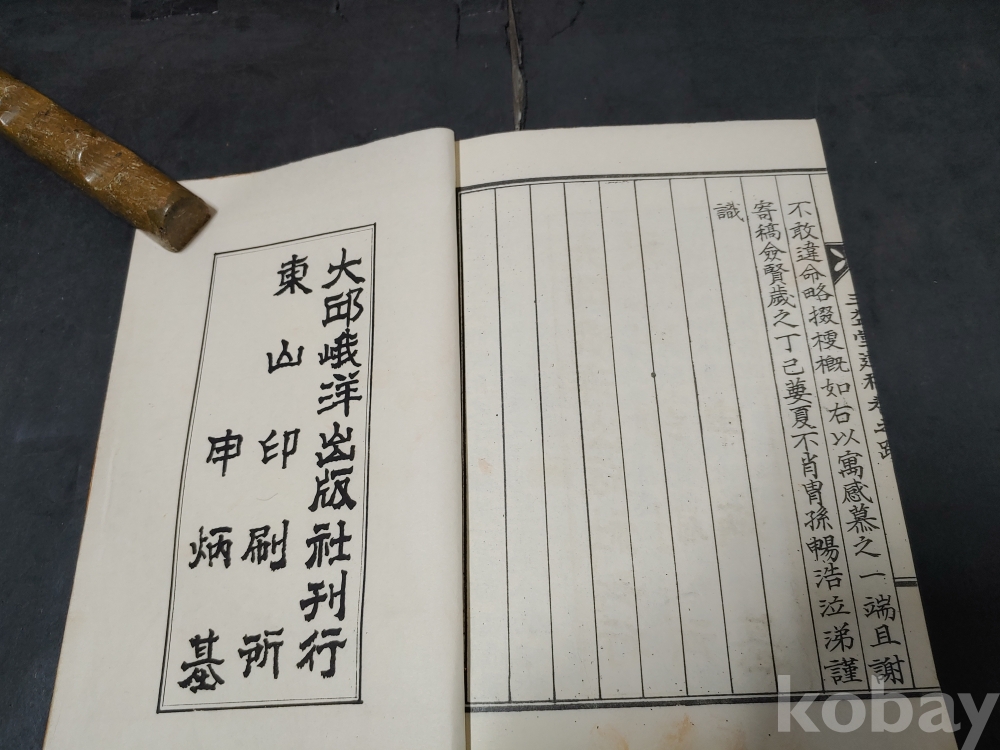 堂
不敢違命略掇梗概如右以寓感慕之一端且謝
寄稿僉賢歲之丁己夏不肖胄孫暢浩泣涕謹
識
大邱峨洋出版社刊行
東山印刷所
申炳基
kobay